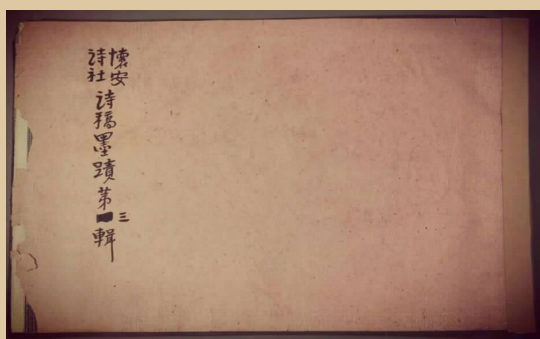 懷安
诗社
诗稿墨蹟第三輯